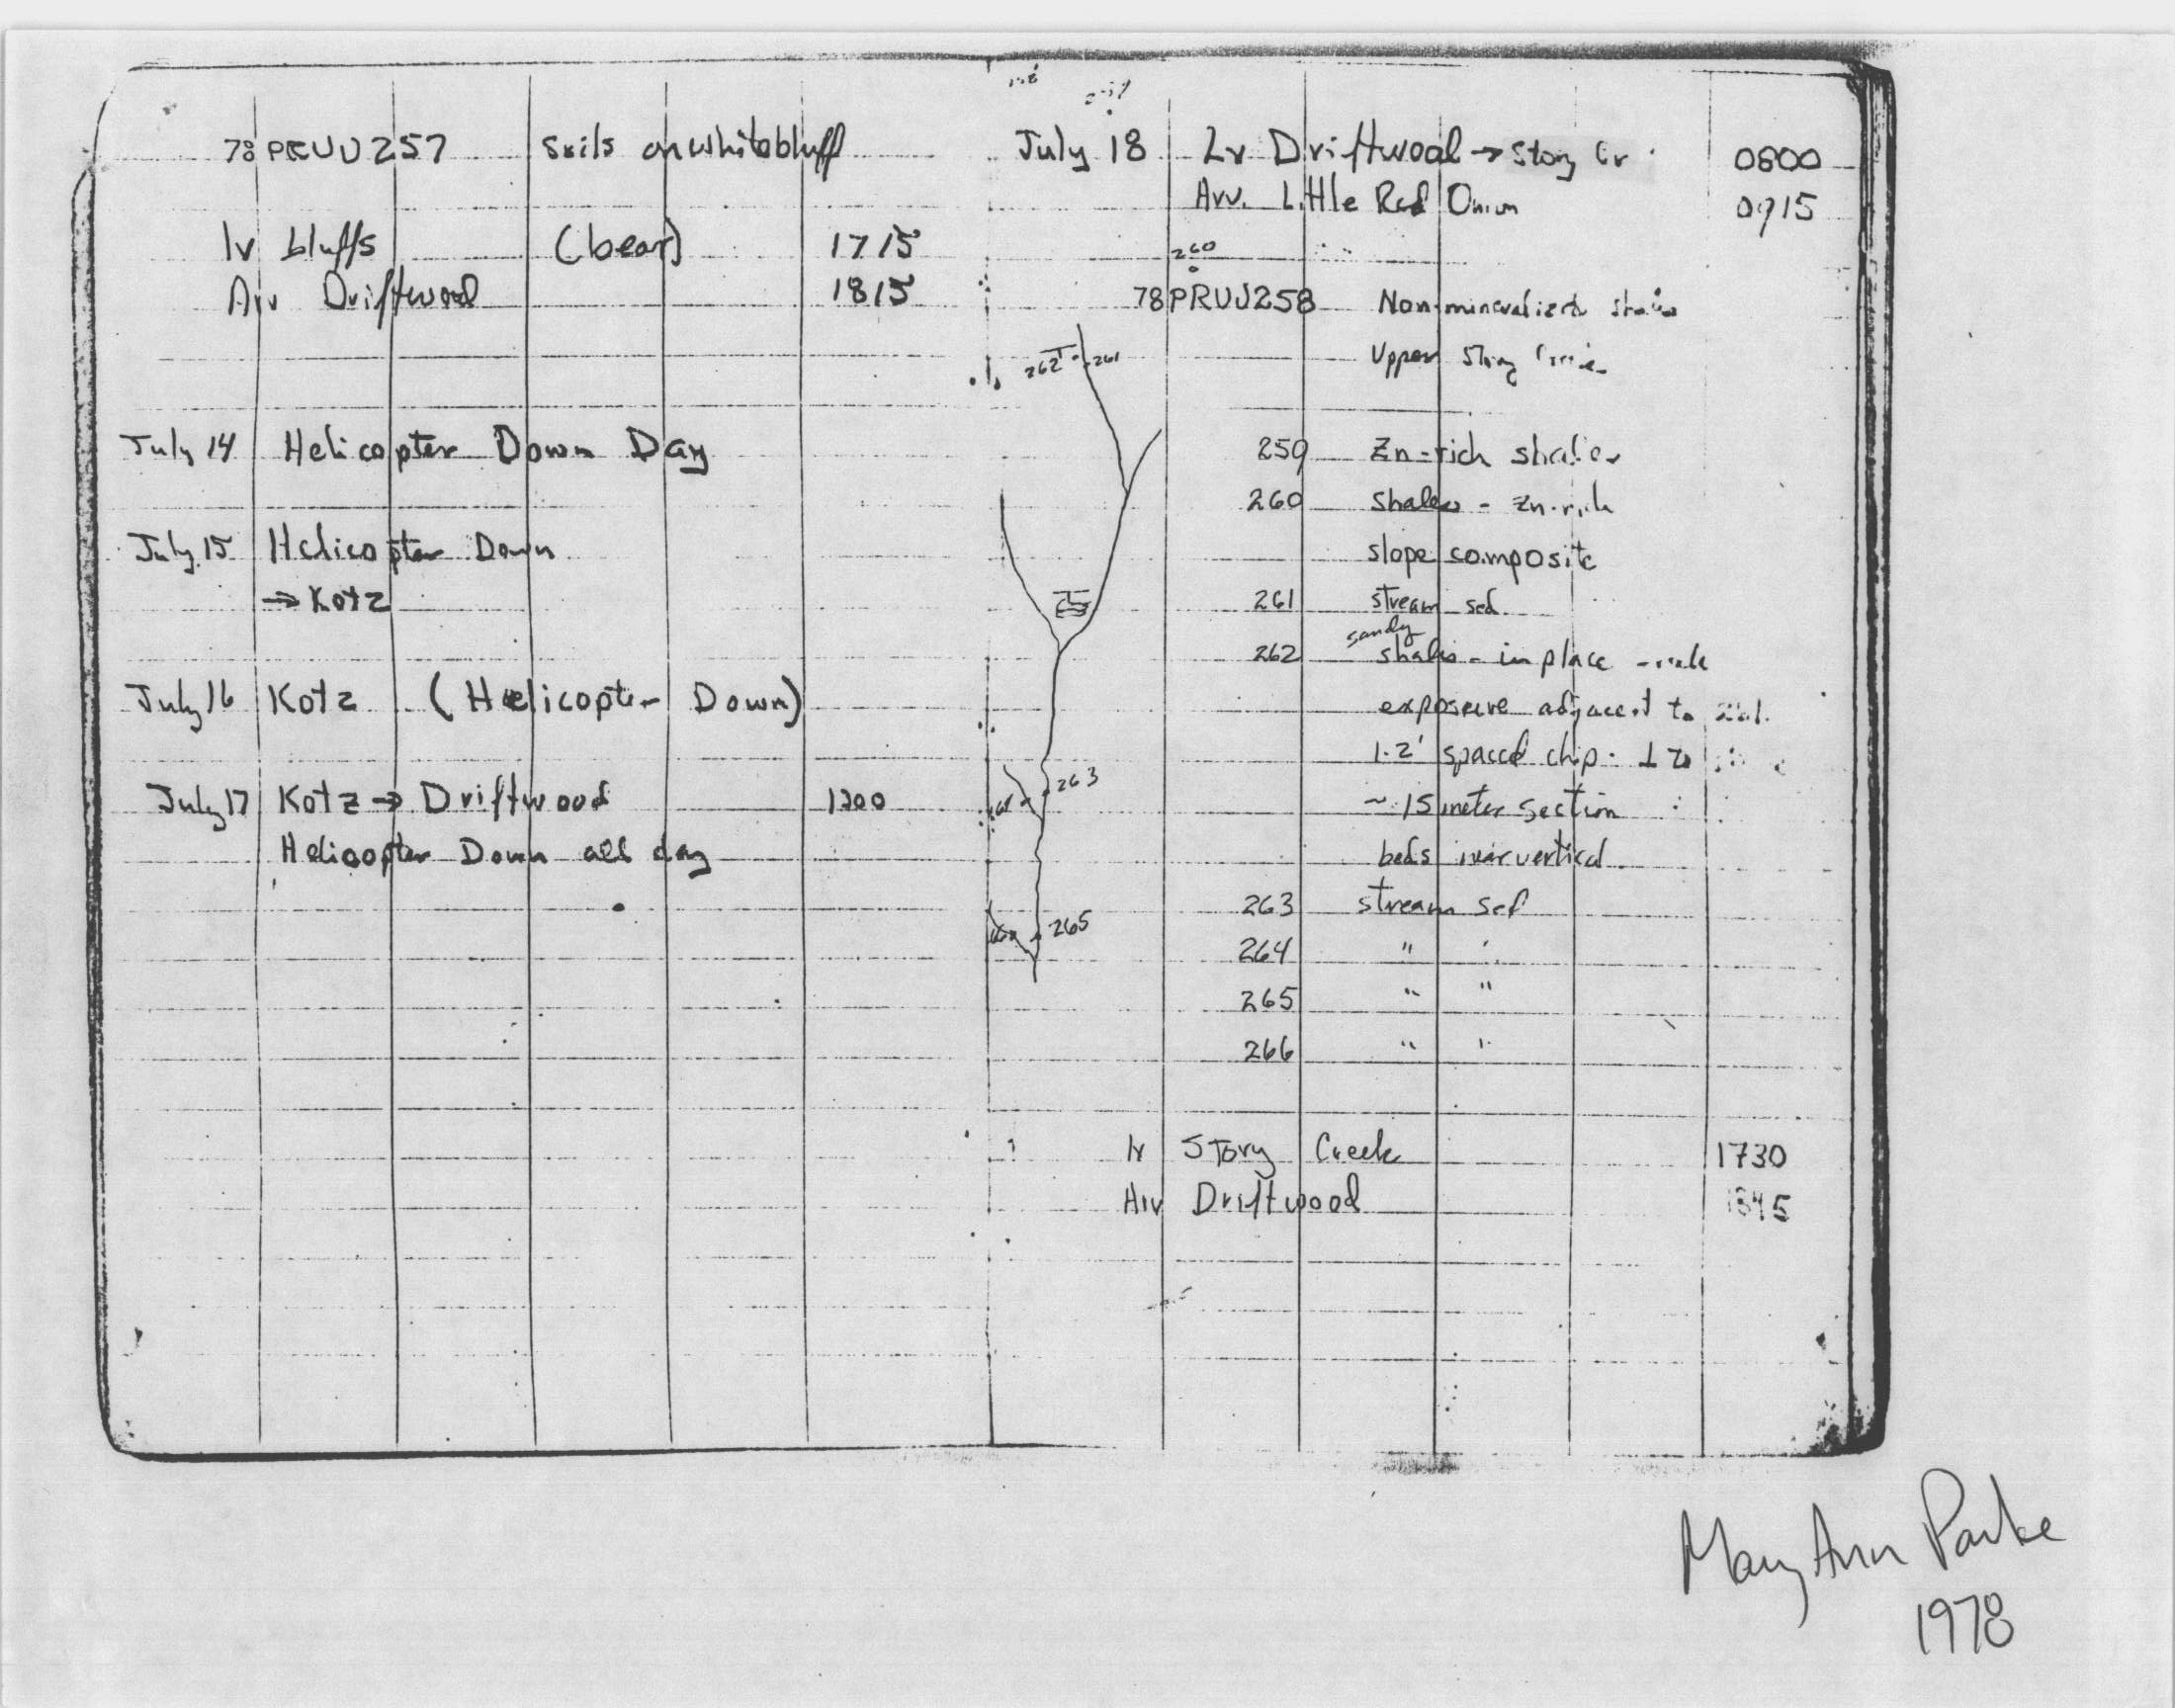 78PRUJ257 Soils on white bluff
lv bluffs (bear) 1715
Arv Driftwood 1815
July 14 Helicopter Down Day
July 15 Helicopter Down
→ Kotz
July 16 Kotz (Helicopter Down)
July 17 Kotz → Driftwood 1200
Helicopter Down all day
July 18 Lv Driftwood → Story Cr 0800
Arv. Little Red Onion 0915
260
78PRUJ258 Non-mineralized shales
Upper Story
262 261
259 Zn-rich shales
260 shales - Zn-rich
slope composite
261 stream sed.
sandy
262 shales - in place
exposure adjacent to 261.
1-2' spaced chip - ⊥ to
263
~ 15 meter section
beds near vertical
263 stream sed
265
264 " "
265 " "
266 " "
lv Story Creek 1730
Arv Driftwood 1845
Mary Ann Parke
1978